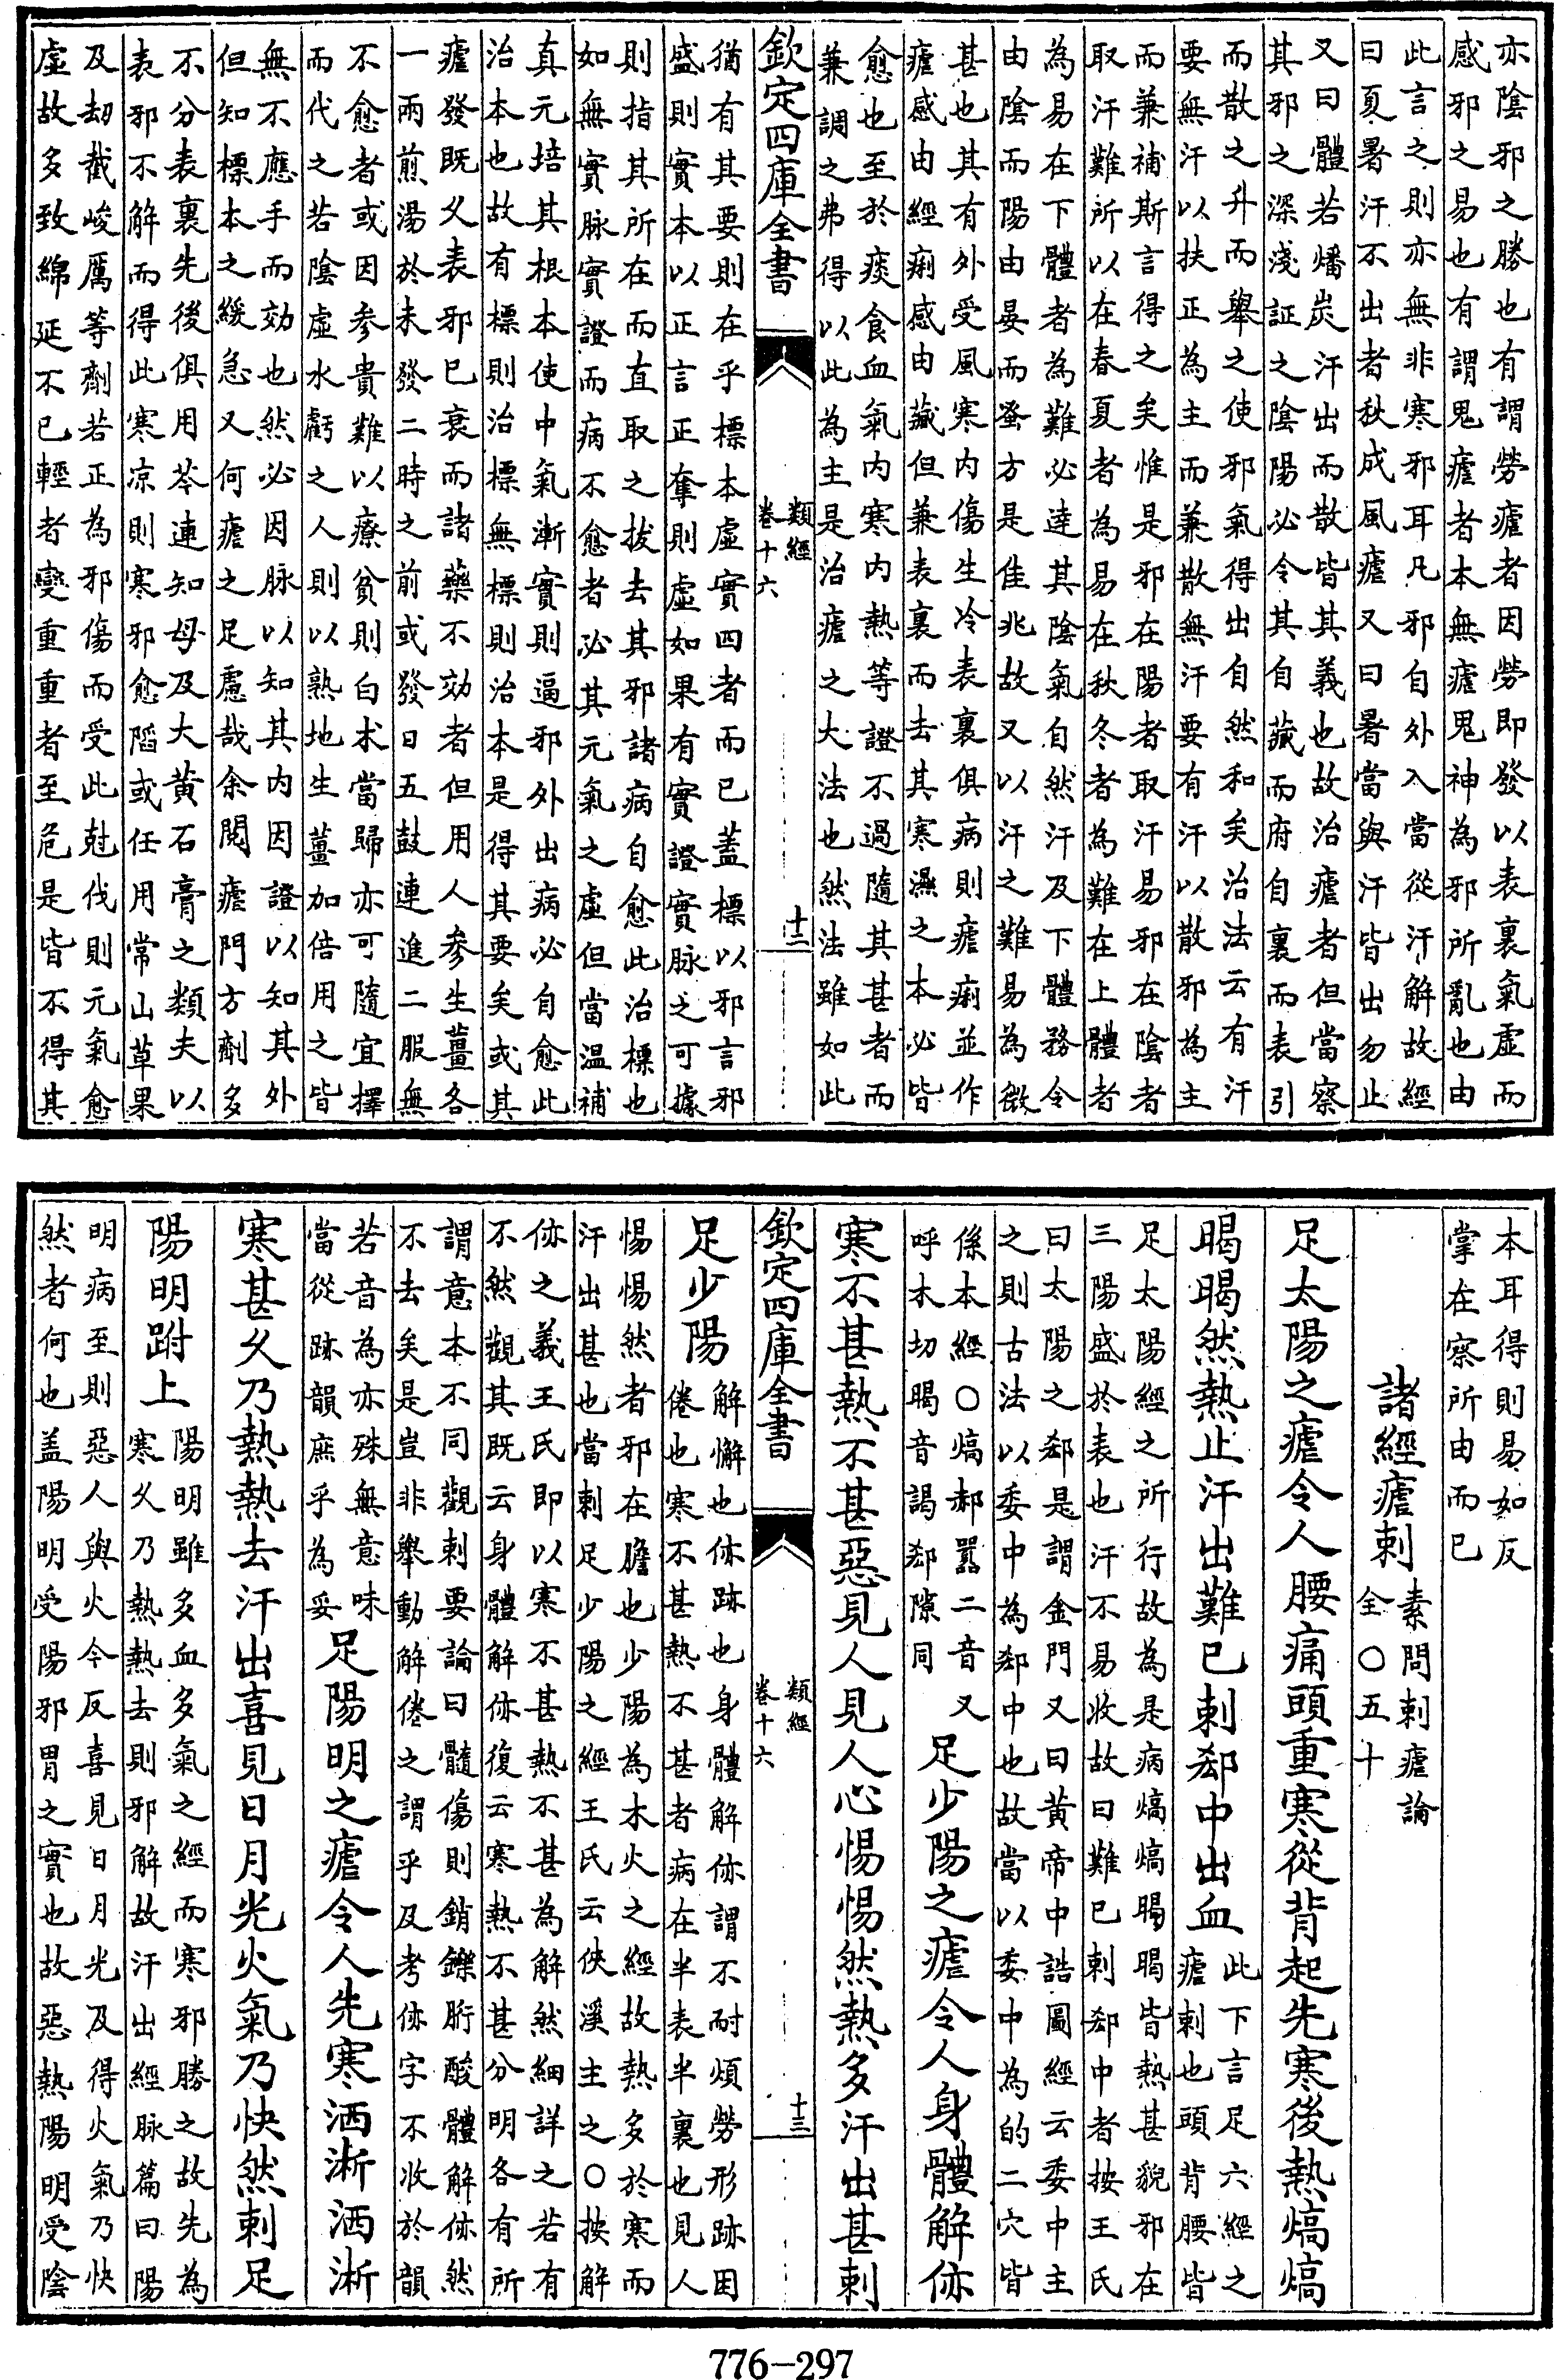 亦陰邪之勝也有謂勞瘧者因勞即發以表裏氣虛而
感邪之易也有謂鬼瘧者本無瘧鬼神為邪所亂也由
此言之則亦無非寒邪耳凡邪自外入當從汗解故經
曰夏暑汗不出者秋成風瘧又曰暑當與汗皆出勿止
又曰體若燔炭汗出而散皆其義也故治瘧者但當察
其邪之深淺証之陰陽必令其自藏而府自裏而表引
而散之升而舉之使邪氣得出自然和矣治法云有汗
要無汗以扶正為主而兼散無汗要有汗以散邪為主
而兼補斯言得之矣惟是邪在陽者取汗易邪在陰者
取汗難所以在春夏者為易在秋冬者為難在上體者
為易在下體者為難必達其陰氣自然汗及下體務令
由陰而陽由晏而蚤方是佳兆故又以汗之難易為微
甚也其有外受風寒内傷生冷表裏俱病則瘧痢並作
瘧感由經痢感由藏但兼表裏而去其寒濕之本必皆
愈也至於痰食血氣内寒内熱等證不過隨其甚者而
兼調之弗得以此為主是治瘧之大法也然法雖如此
欽定四庫全書
類經
卷十六
十二
猶有其要則在乎標本虛實四者而已蓋標以邪言邪
盛則實本以正言正奪則虛如果有實證實脉之可據
則指其所在而直取之拔去其邪諸病自愈此治標也
如無實脉實證而病不愈者必其元氣之虛但當温補
真元培其根本使中氣漸實則逼邪外出病必自愈此
治本也故有標則治標無標則治本是得其要矣或其
瘧發既久表邪已衰而諸藥不効者但用人參生薑各
一兩煎湯於未發二時之前或發日五鼓連進二服無
不愈者或因参貴難以療貧則白术當歸亦可隨宜擇
而代之若陰虛水虧之人則以熟地生薑加倍用之皆
無不應手而効也然必因脉以知其内因證以知其外
但知標本之緩急又何瘧之足慮哉余閱瘧門方劑多
不分表裏先後俱用芩連知母及大黄石膏之類夫以
表邪不解而得此寒凉則寒邪愈䧟或任用常山草果
及刼截峻厲等劑若正為邪傷而受此尅伐則元氣愈
虛故多致綿延不已輕者變重重者至危是皆不得其
本耳得則易如反
掌在察所由而已
諸經瘧刺
素問刺瘧論
全〇五十
足太陽之瘧令人腰痛頭重寒從背起先寒後熱熇熇
暍暍然熱止汗出難已刺郄中出血
此下言足六經之
瘧刺也頭背腰皆
足太陽經之所行故為是病熇熇暍暍皆熱甚貌邪在
三陽盛於表也汗不易收故曰難已刺郄中者按王氏
曰太陽之郄是謂金門又曰黄帝中誥圖經云委中主
之則古法以委中為郄中也故當以委中為的二穴皆
係本經〇熇郝囂二音又
呼木切暍音謁郄隙同
足少陽之瘧令人身體解㑊
寒不甚熱不甚惡見人見人心惕惕然熱多汗出甚刺
欽定四庫全書
類經
卷十六
十三
足少陽
解懈也㑊跡也身體解㑊謂不耐煩勞形跡困
倦也寒不甚熱不甚者病在半表半裏也見人
惕惕然者邪在膽也少陽為木火之經故熱多於寒而
汗出甚也當刺足少陽之經王氏云俠溪主之〇按解
㑊之義王氏即以寒不甚熱不甚為解然細詳之若有
不然觀其既云身體解㑊復云寒熱不甚分明各有所
謂意本不同觀刺要論曰髓傷則銷鑠胻酸體解㑊然
不去矣是豈非舉動解倦之謂乎及考㑊字不收於韻
若音為亦殊無意味
當從跡韻庶乎為妥
足陽明之瘧令人先寒洒淅洒淅
寒甚久乃熱熱去汗出喜見日月光火氣乃快然刺足
陽明跗上
陽明雖多血多氣之經而寒邪勝之故先為
寒久乃熱熱去則邪解故汗出經脉篇曰陽
明病至則惡人與火今反喜見日月光及得火氣乃快
然者何也盖陽明受陽邪胃之實也故惡熱陽明受陰
776-297